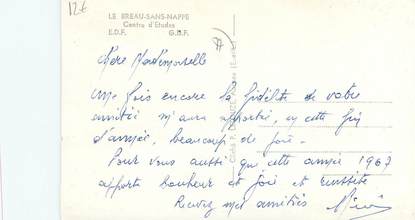 12€
LE BREAU-SANS-NAPPE
Centre d'Etudes
E.D.F. G.D.F.
Chère Mademoiselle
Une fois encore la fidélité de votre
amitié m'aura apporté, en cette fin
d'année, beaucoup de joie.
Pour vous aussi que cette année 1967
apporte bonheur et joie et réussite
Recevez mes amitiés
Cliché P.